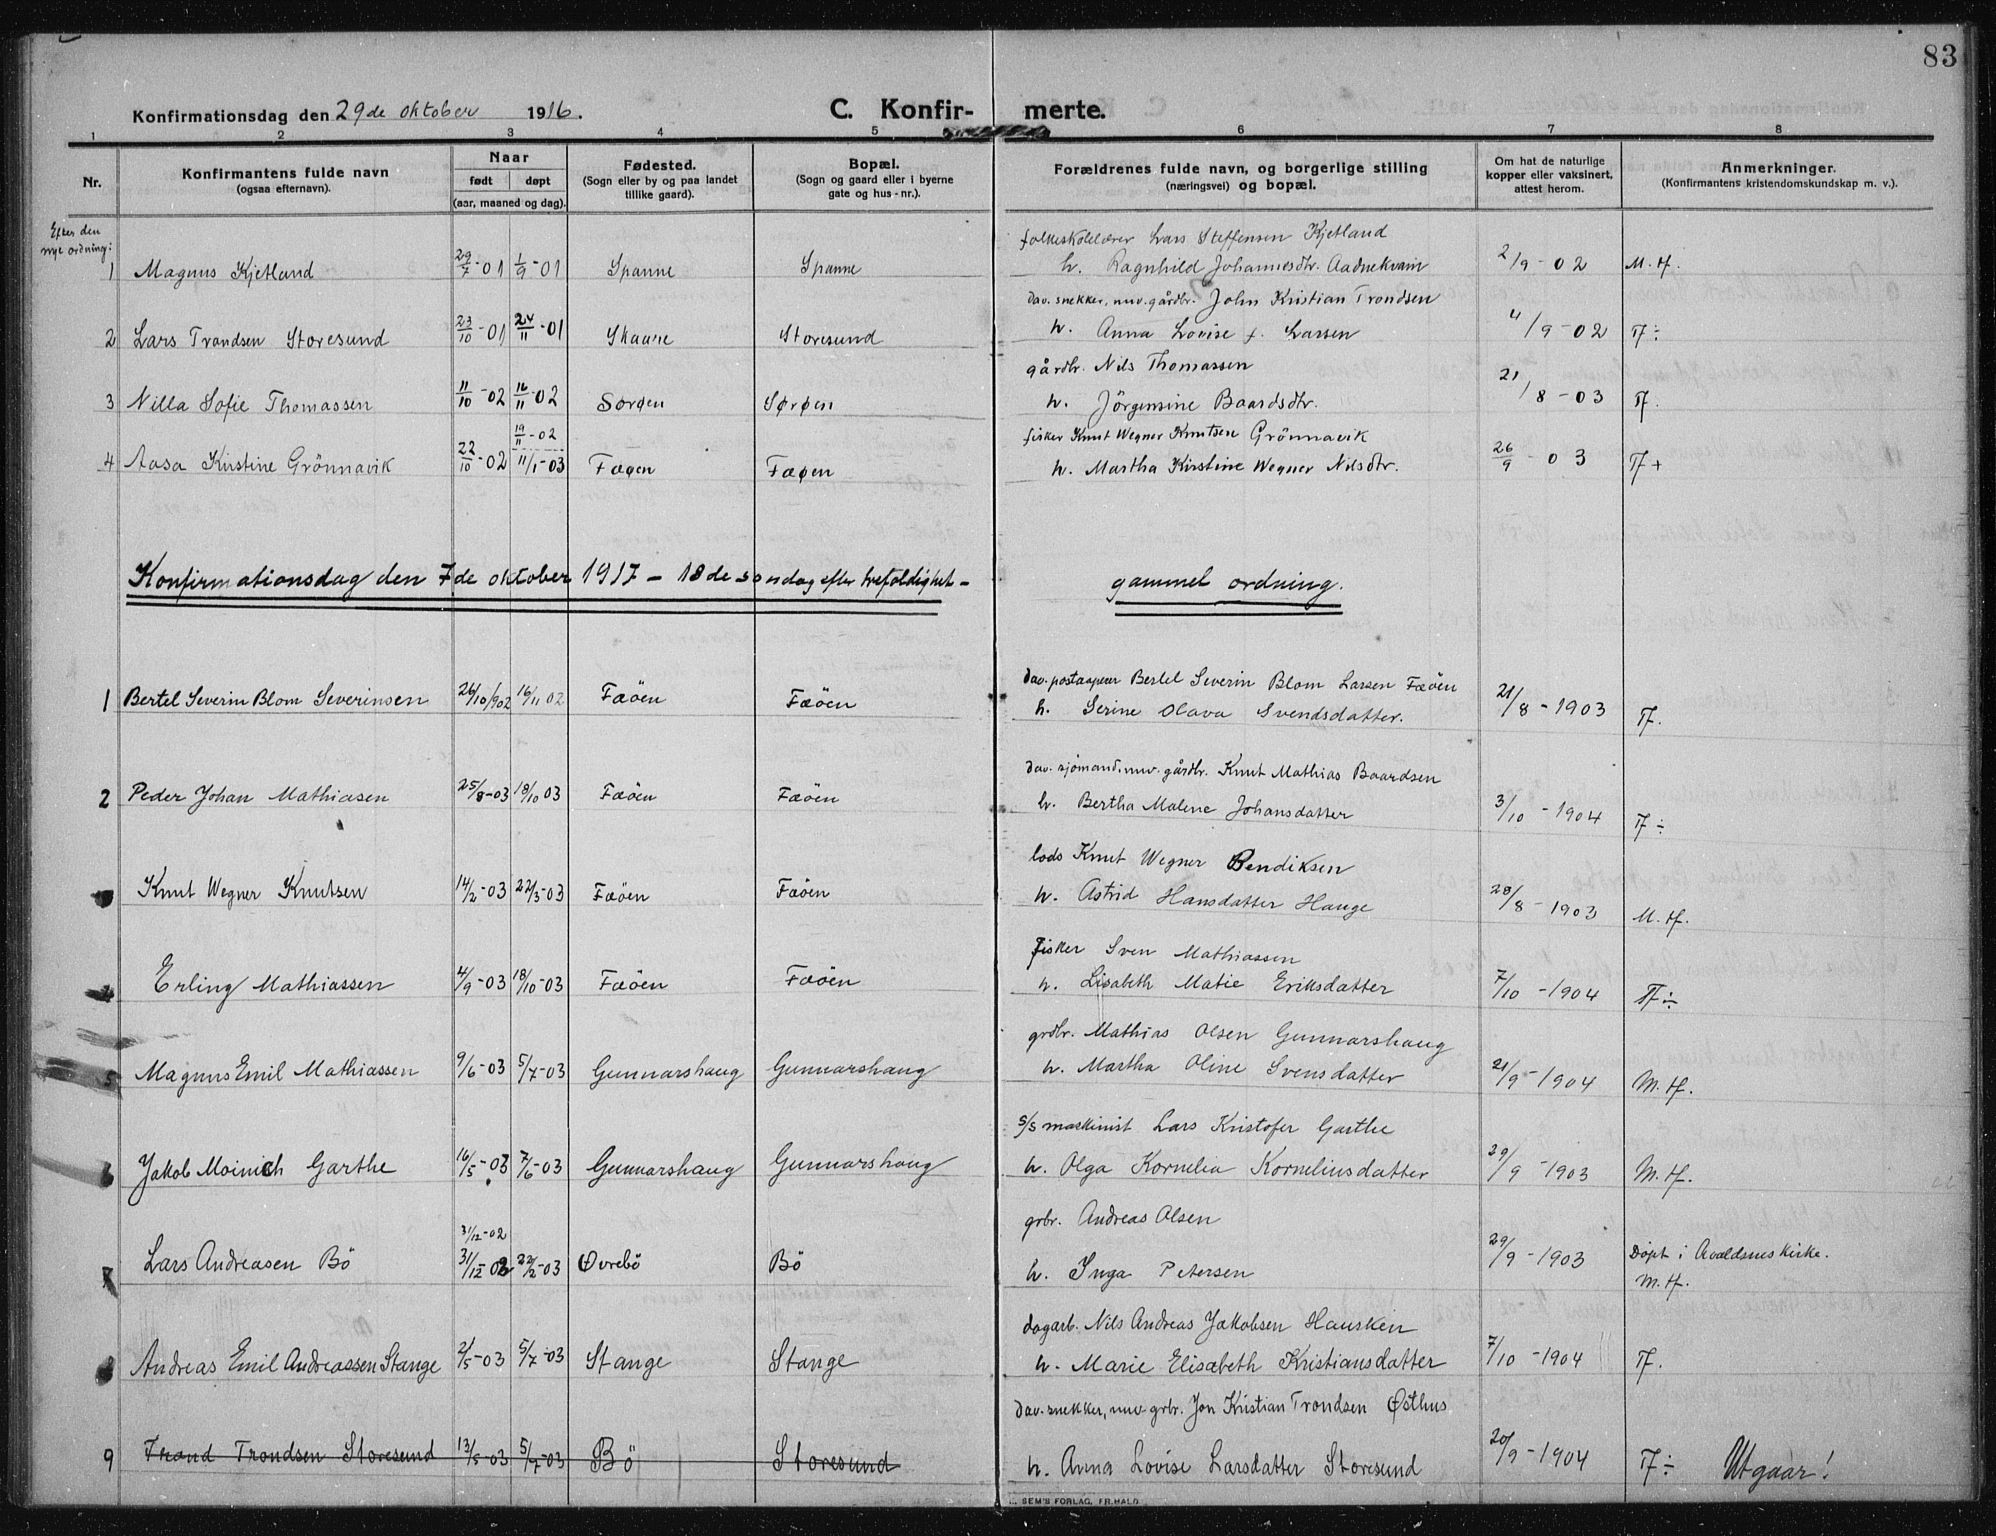 83
Konfirmationsdag den 29de oktober 1916. C. Konfir- merte.
1 2 3 4 5 6 7 8
Nr. Konfirmantens fulde navn (ogsaa efternavn). Naar født døpt (aar, maaned og dag). Fødested. (Sogn eller by og paa landet tillike gaard). Bopæl. (Sogn og gaard eller i byerne gate og hus-nr.). Forældrenes fulde navn, og borgerlige stilling (næringsvei) og bopæl. Om hat de naturlige kopper eller vaksinert, attest herom. Anmerkninger. (Konfirmantens kristendomskundskap m. v.).
Efter den
nye ordning:
folkeskolelærer Lars Steffensen Kjetland
1 Magnus Kjetland 29/7-01 1/9-01 Spanne Spanne h. Ragnhild Johannesdtr. Aadnekvam 2/9-02 M.tf.
dav. snekker, nuv. gårdbr. John Kristian Trondsen
2 Lars Trondsen Storesund 23/10-01 24/11-01 Skaare Storesund h. Anna Lovise f. Larsen 4/9-02 Tf÷
gårdbr. Nils Thomassen
3 Nilla Sofie Thomassen 11/10-02 16/11-02 Sørøen Sørøen h. Jörgensine Baardsdtr. 21/8-03 Tf.
19/11-02 fisker Knut Wegner Knutsen Grönnavik
4 Aasa Kirstine Grönnavik 22/10-02 11/1-03 Fæøen Fæøen h. Martha Kirstine Wegner Nilsdtr. 26/9-03 Tf+
Konfirmationsdag den 7de oktober 1917 - 18de søndag efter trefoldighet - gammel ordning.
dav. postaapner Bertel Severin Blom Larsen Fæöen
1 Bertel Severin Blom Severinsen 26/10/902 16/11 02 Fæöen Fæöen h. Serine Olava Svendsdatter. 21/8-1903 Tf.
dav. sjömand, nuv. gårdbr. Knut Mathias Baardsen
2 Peder Johan Mathiasen 25/8-03 18/10 03 Fæöen Fæöen h. Bertha Malene Johansdatter 3/10-1904 Tf÷
lods Knut Wegner Bendiksen
Knut Wegner Knutsen 14/2-03 22/3-03 Fæöen Fæöen h. Astrid Hansdatter Hauge 28/8-1903 M.tf.
Fisker Sven Mathiassen
4 Erling Mathiassen 4/9-03 18/10-03 Fæöen Fæöen h. Lisabeth Matie Eriksdatter 7/10-1904 Tf÷
grdbr. Mathias Olsen Gunnarshaug
5 Magnus Emil Mathiassen 9/6-03 5/7-03 Gunnarshaug Gunnarshaug h. Martha Oline Svensdatter 21/9-1904 M.tf.
s/s maskinist Lars Kristofer Garthe
6 Jakob Moinich Garthe 16/5-03 7/6-03 Gunnarshaug Gunnarshaug h. Olga Kornelia Korneliusdatter 29/9-1903 M.tf.
31/12-02 grbr. Andreas Olsen
7 Lars Andreasen Bö 31/12-02 22/2-03 Øvrebö Bö h. Inga Petersen 29/9-1903 Døpt i Avaldsnes kirke.
M.tf.
dagarb. Nils Andreas Jakobsen Hausken
8 Andreas Emil Andreassen Stange 2/5-03 5/7-03 Stange Stange h. Marie Elisabeth Kristiansdatter 7/10-1904 Tf.
dav. snekker, nuv. grbr. Jon Kristian Trondsen Østhus
9 Trond Trondsen Storesund 13/5-03 5/7-03 Bö Storesund h. Anna Lovise Larsdatter Storesund 20/9-1904 Tf÷ Utgaar!
SEM'S FORLAG, FR.HALD